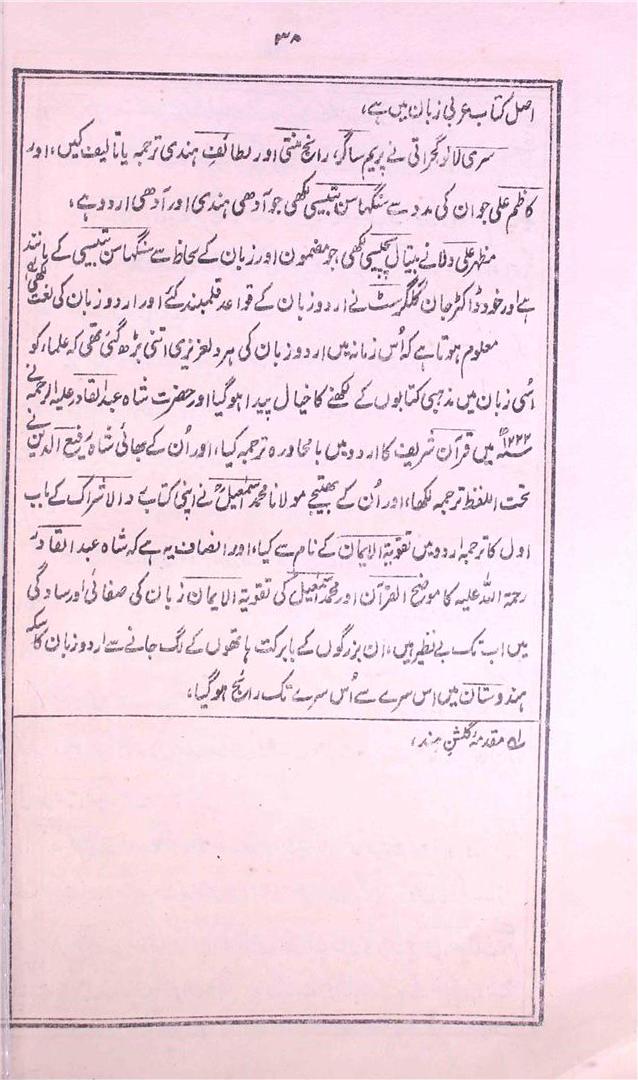 ۳۸
اصل کتاب عربی زبان میں ہے،
سری لالو گجراتی نے پریم ساگر، راج نیتی اور لطائف ہندی ترجمہ یا تالیف کیں، اور
کاظم علی جوان کی مدد سے سنگھاسن بتیسی لکھی جو آدھی ہندی اور آدھی اردو ہے،
مظہر علی ولا نے بیتال پچیسی لکھی جو مضمون اور زبان کے لحاظ سے سنگھاسن بتیسی کے مانند
ہے اور خود ڈاکٹر جان گلگرسٹ نے اردو زبان کے قواعد قلمبند کئے اور اردو زبان کی لغت لکھی
معلوم ہوتا ہے کہ اُس زمانہ میں اردو زبان کی ہردلعزیزی اتنی بڑھ گئی تھی کہ علماء کو
اسی زبان میں مذہبی کتابوں کے لکھنے کا خیال پیدا ہوگیا اور حضرت شاہ عبدالقادر علیہ الرحمۃ نے
۱۲۲۲ھ میں قرآن شریف کا اردو میں بامحاورہ ترجمہ کیا، اور اُن کے بھائی شاہ رفیع الدین نے
تحت اللفظ ترجمہ لکھا، اور اُن کے بھتیجے مولانا محمد اسمٰعیلؒ نے اپنی کتاب رد الاشراک کے باب
اول کا ترجمہ اردو میں تقویۃ الایمان کے نام سے کیا، اور انصاف یہ ہے کہ شاہ عبد القادر
رحمۃ اللہ علیہ کا موضح القرآن اور محمد اسمٰعیل کی تقویۃ الایمان زبان کی صفائی اور سادگی
میں اب تک بے نظیر ہیں، ان بزرگوں کے بابرکت ہاتھوں کے لگ جانے سے اردو زبان کا سکہ
ہندوستان میں اس سرے سے اُس سرے تک رائج ہوگیا،
لہ مقدمۂ گلشنِ ہند،